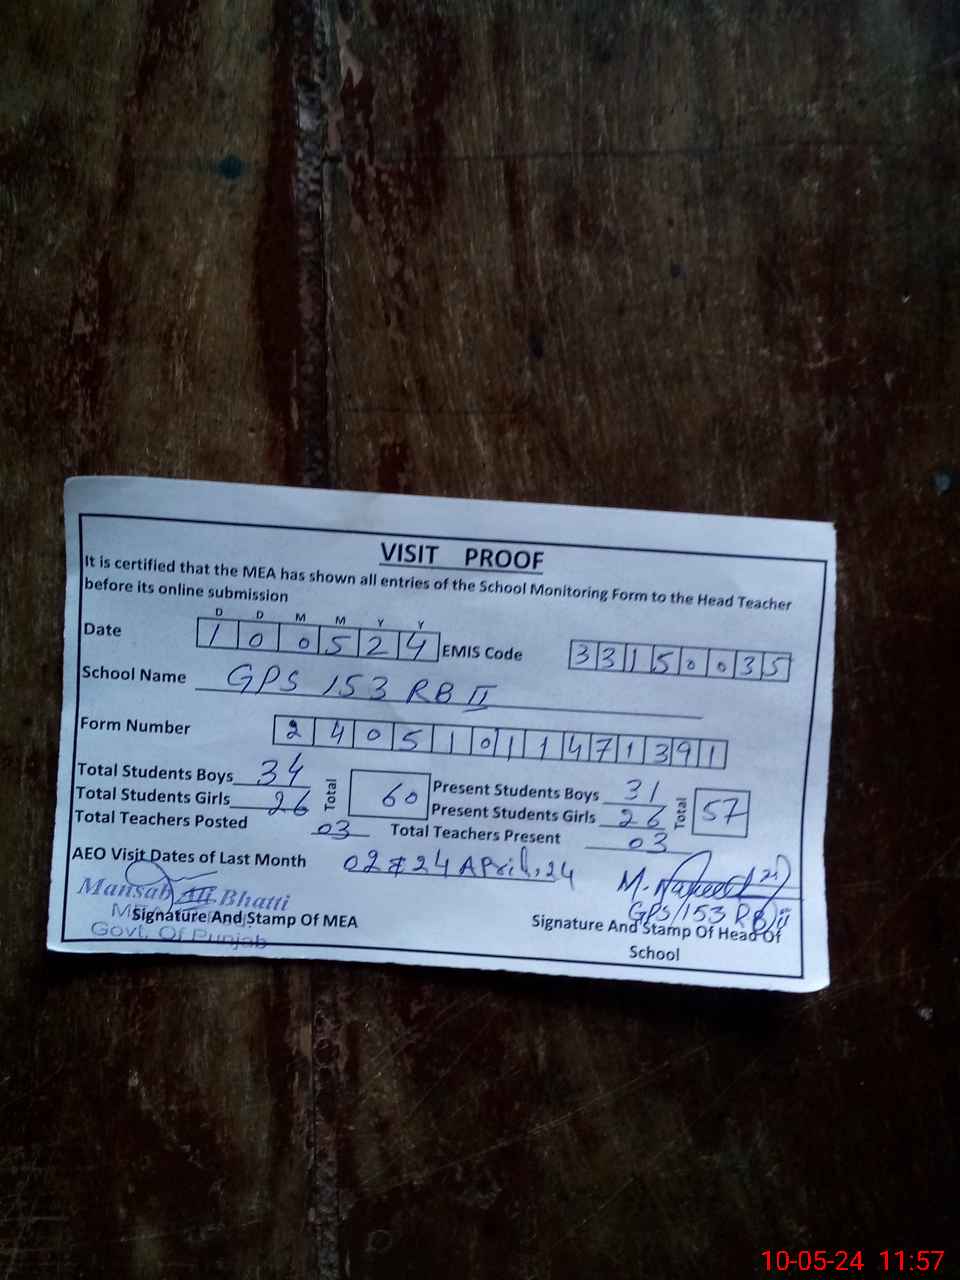 VISIT PROOF
It is certified that the MEA has shown all entries of the School Monitoring Form to the Head Teacher
before its online submission
D D M M Y Y
Date 1 0 0 5 2 4 EMIS Code 3 3 1 5 0 0 3 5
School Name GPS 153 RB II
Form Number 2 4 0 5 1 0 1 1 4 7 1 3 9 1
Total Students Boys 34 Total 60 Present Students Boys 31 Total 57
Total Students Girls 26 Present Students Girls 26
Total Teachers Posted 03 Total Teachers Present 03
AEO Visit Dates of Last Month 02 & 24 April, 24
Mansab Ali Bhatti
M.
GPS/153 RB/ii
Signature And Stamp Of MEA
Govt. Of Punjab
Signature And Stamp Of Head Of
School
10-05-24 11:57